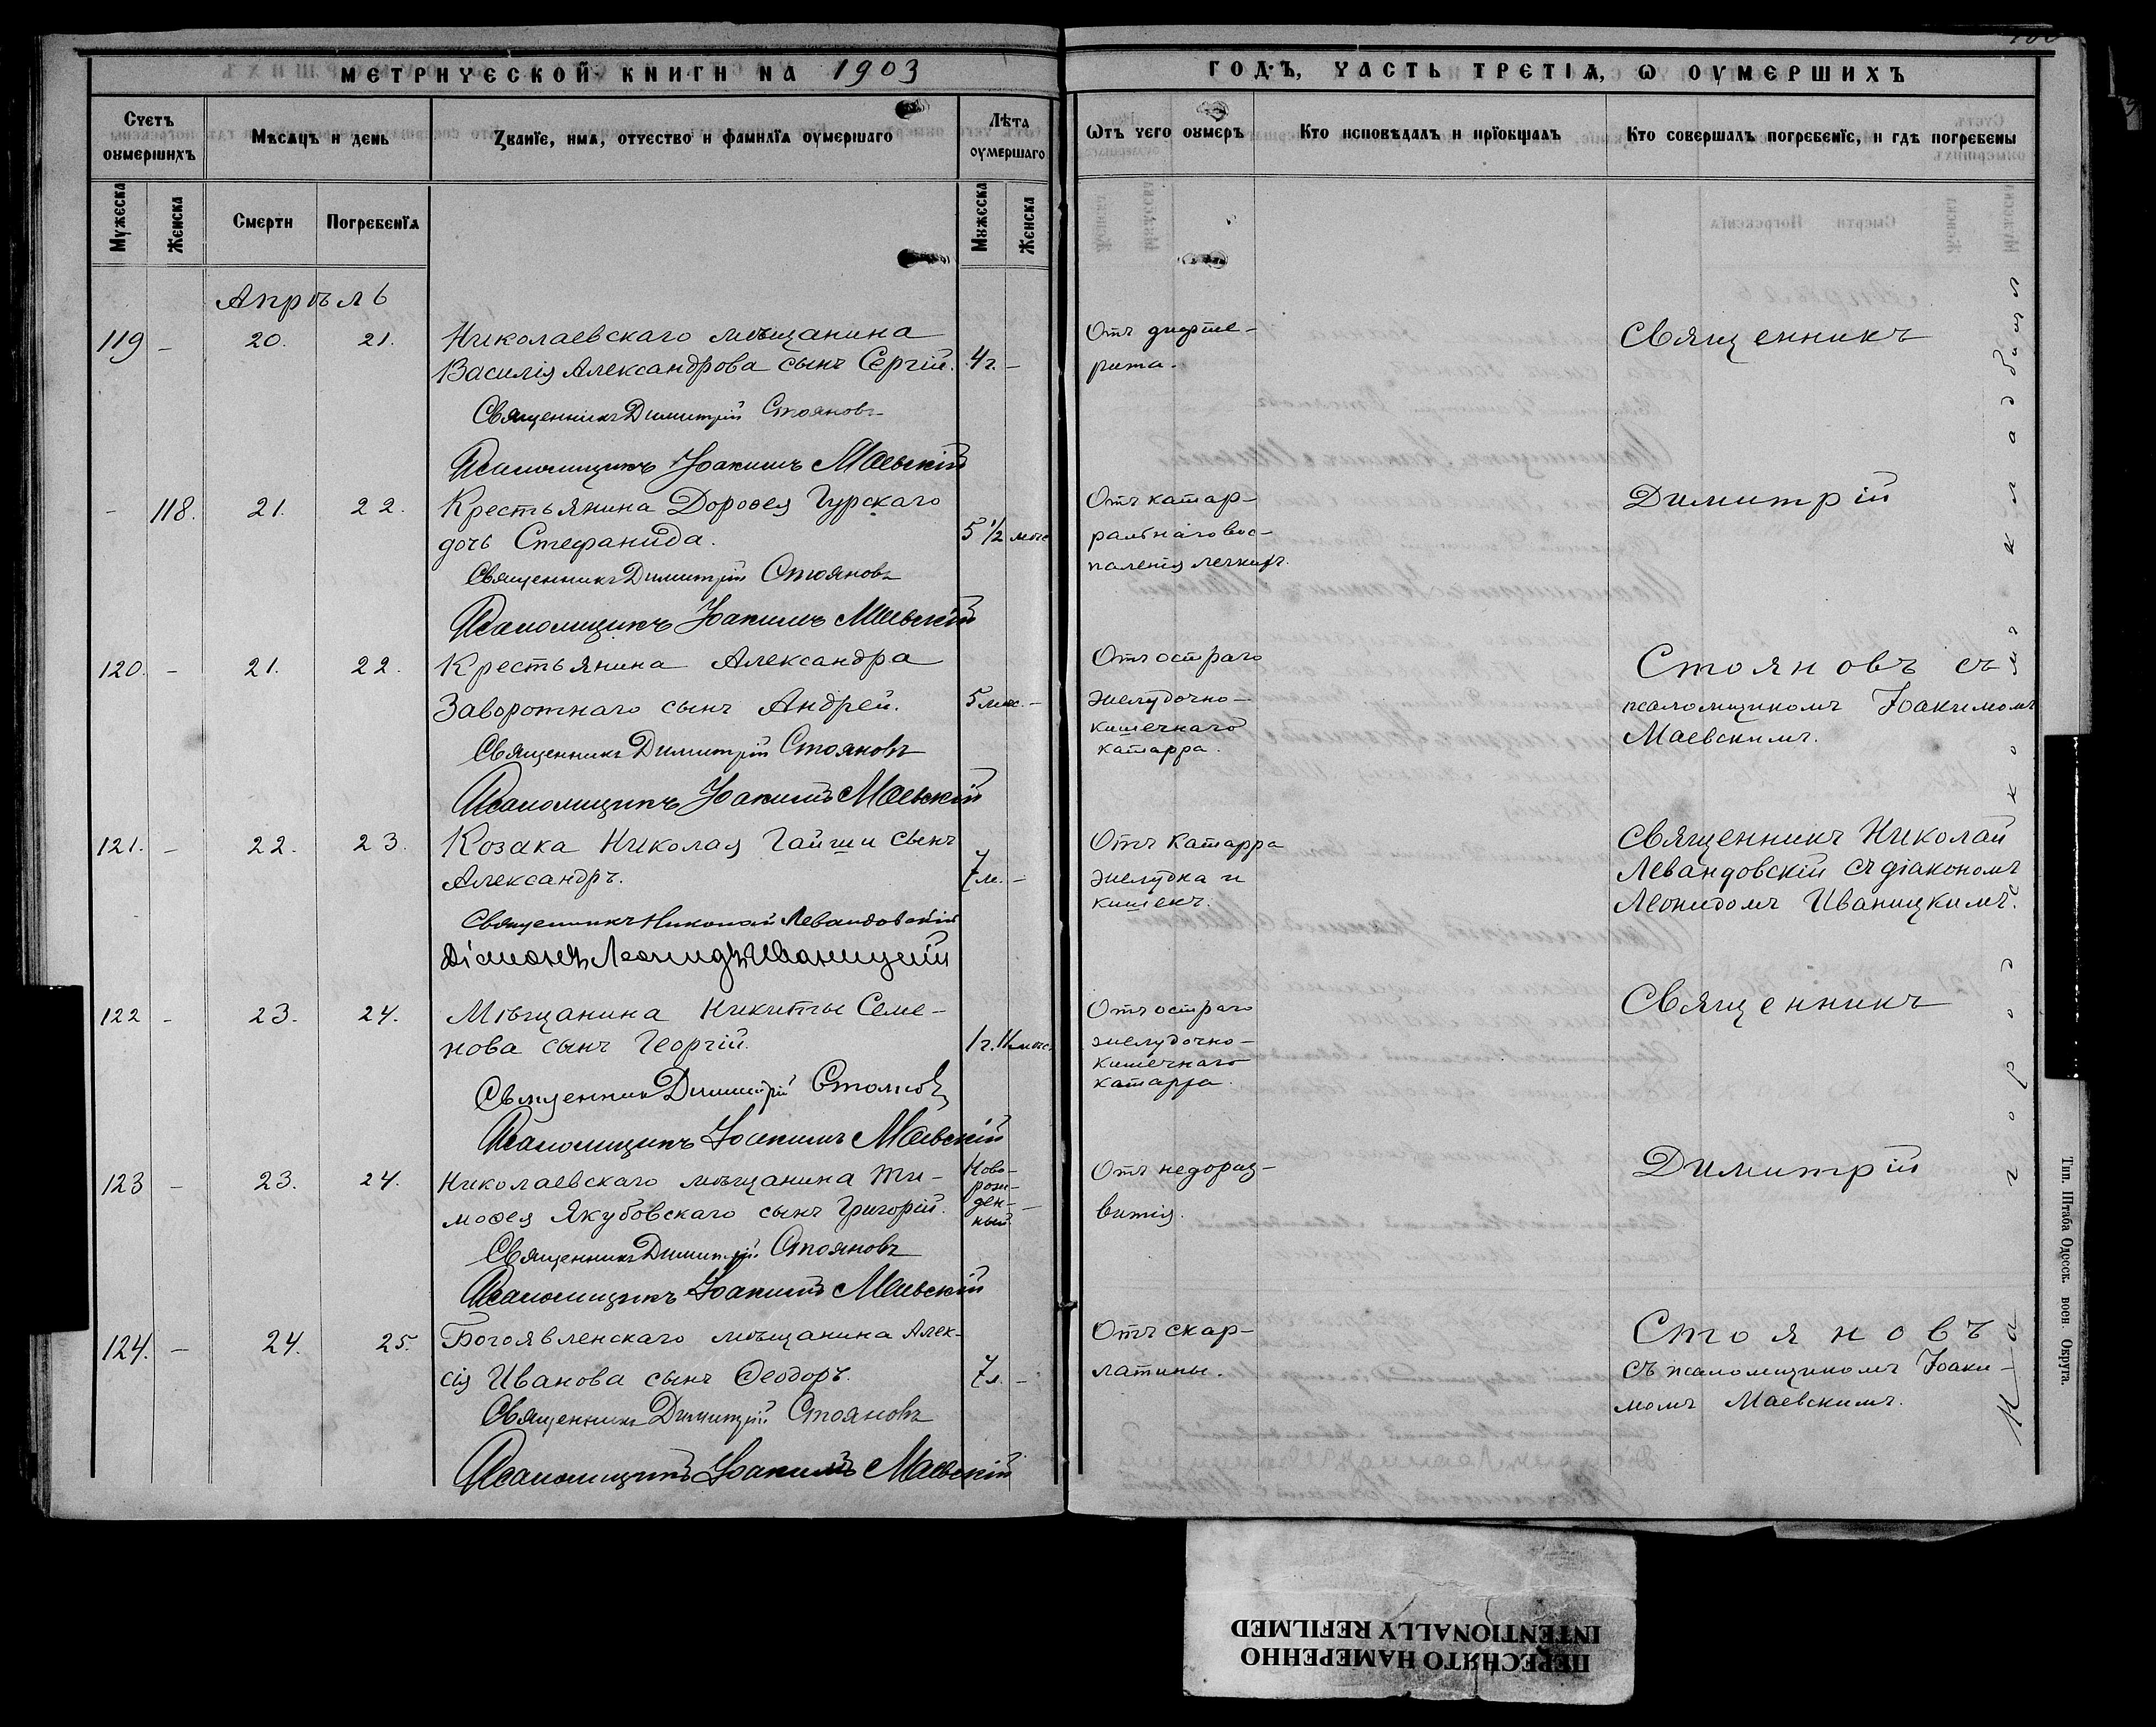 МЕТРИЧЕСКОЙ КНИГИ НА 1903
ГОДЪ, ЧАСТЬ ТРЕТІѦ, Ѡ ОУМЕРШИХЪ
Счетъ оумершихъ
Мѣсяцъ и день
Званїе, имѧ, отчество и фамилїѧ оумершаго
Лѣта оумершаго
Ѿтъ чего оумеръ
Кто исповѣдалъ и прїобщалъ
Кто совершалъ погребенїе, и гдѣ погребены
Мужеска
Женска
Смерти
Погребенїѧ
Мужеска
Женска
Апрѣль
119 – 20. 21. Николаевскаго мѣщанина
Василія Александрова сынъ Сергій. 4 г. –
Священникъ Димитрій Стояновъ
Псаломщикъ Іоакимъ Маевскій
Отъ дифте-
рита.
Священникъ
– 118. 21. 22. Крестьянина Дороѳея Гурскаго
дочь Стефанида. 5 1/2 мѣс
Священникъ Димитрій Стояновъ
Псаломщикъ Іоакимъ Маевскій
Отъ катар-
ральнаго вос-
паленія легкихъ.
Димитрій
120. – 21. 22. Крестьянина Александра
Заворотнаго сынъ Андрей. 5 мѣс. –
Священникъ Димитрій Стояновъ
Псаломщикъ Іоакимъ Маевскій
Отъ остраго
желудочно-
кишечнаго
катарра.
Стояновъ съ
псаломщикомъ Іоакимомъ
Маевскимъ.
121. – 22. 23. Козака Николая Гайши сынъ
Александръ. 7 м. –
Священникъ Николай Левандовскій
Діаконъ Леонидъ Иваницкій
Отъ Катарра
желудка и
кишекъ.
Священникъ Николай
Левандовскій съ діакономъ
Леонидомъ Иваницкимъ.
122 – 23. 24. Мѣщанина Никиты Семе-
нова сынъ Георгій. 1 г. 11 мѣс.
Священник Димитрій Стоянов
Псаломщикъ Іоакимъ Маевскій
Отъ остраго
желудочно-
кишечнаго
катарра.
Священникъ
123 – 23. 24. Николаевскаго мѣщанина Ти-
моѳея Якубовскаго сынъ Григорій.
Ново-
рож-
ден-
ный –
Священникъ Димитрій Стояновъ
Псаломщикъ Іоакимъ Маевскій
Отъ недораз-
витія.
Димитрій
124. – 24. 25. Богоявленскаго мѣщанина Алек-
сія Иванова сынъ Ѳеодоръ. 7 л. –
Священникъ Димитрій Стояновъ
Псаломщикъ Іоакимъ Маевскій
Отъ скар-
латины.
Стояновъ
съ псаломщикомъ Іоаки-
момъ Маевскимъ.
На городскомъ кладбищѣ
Тип. Штаба Одесск. воен. Округа.
ПЕРЕСНЯТО НАМЕРЕННО
INTENTIONALLY REFILMED